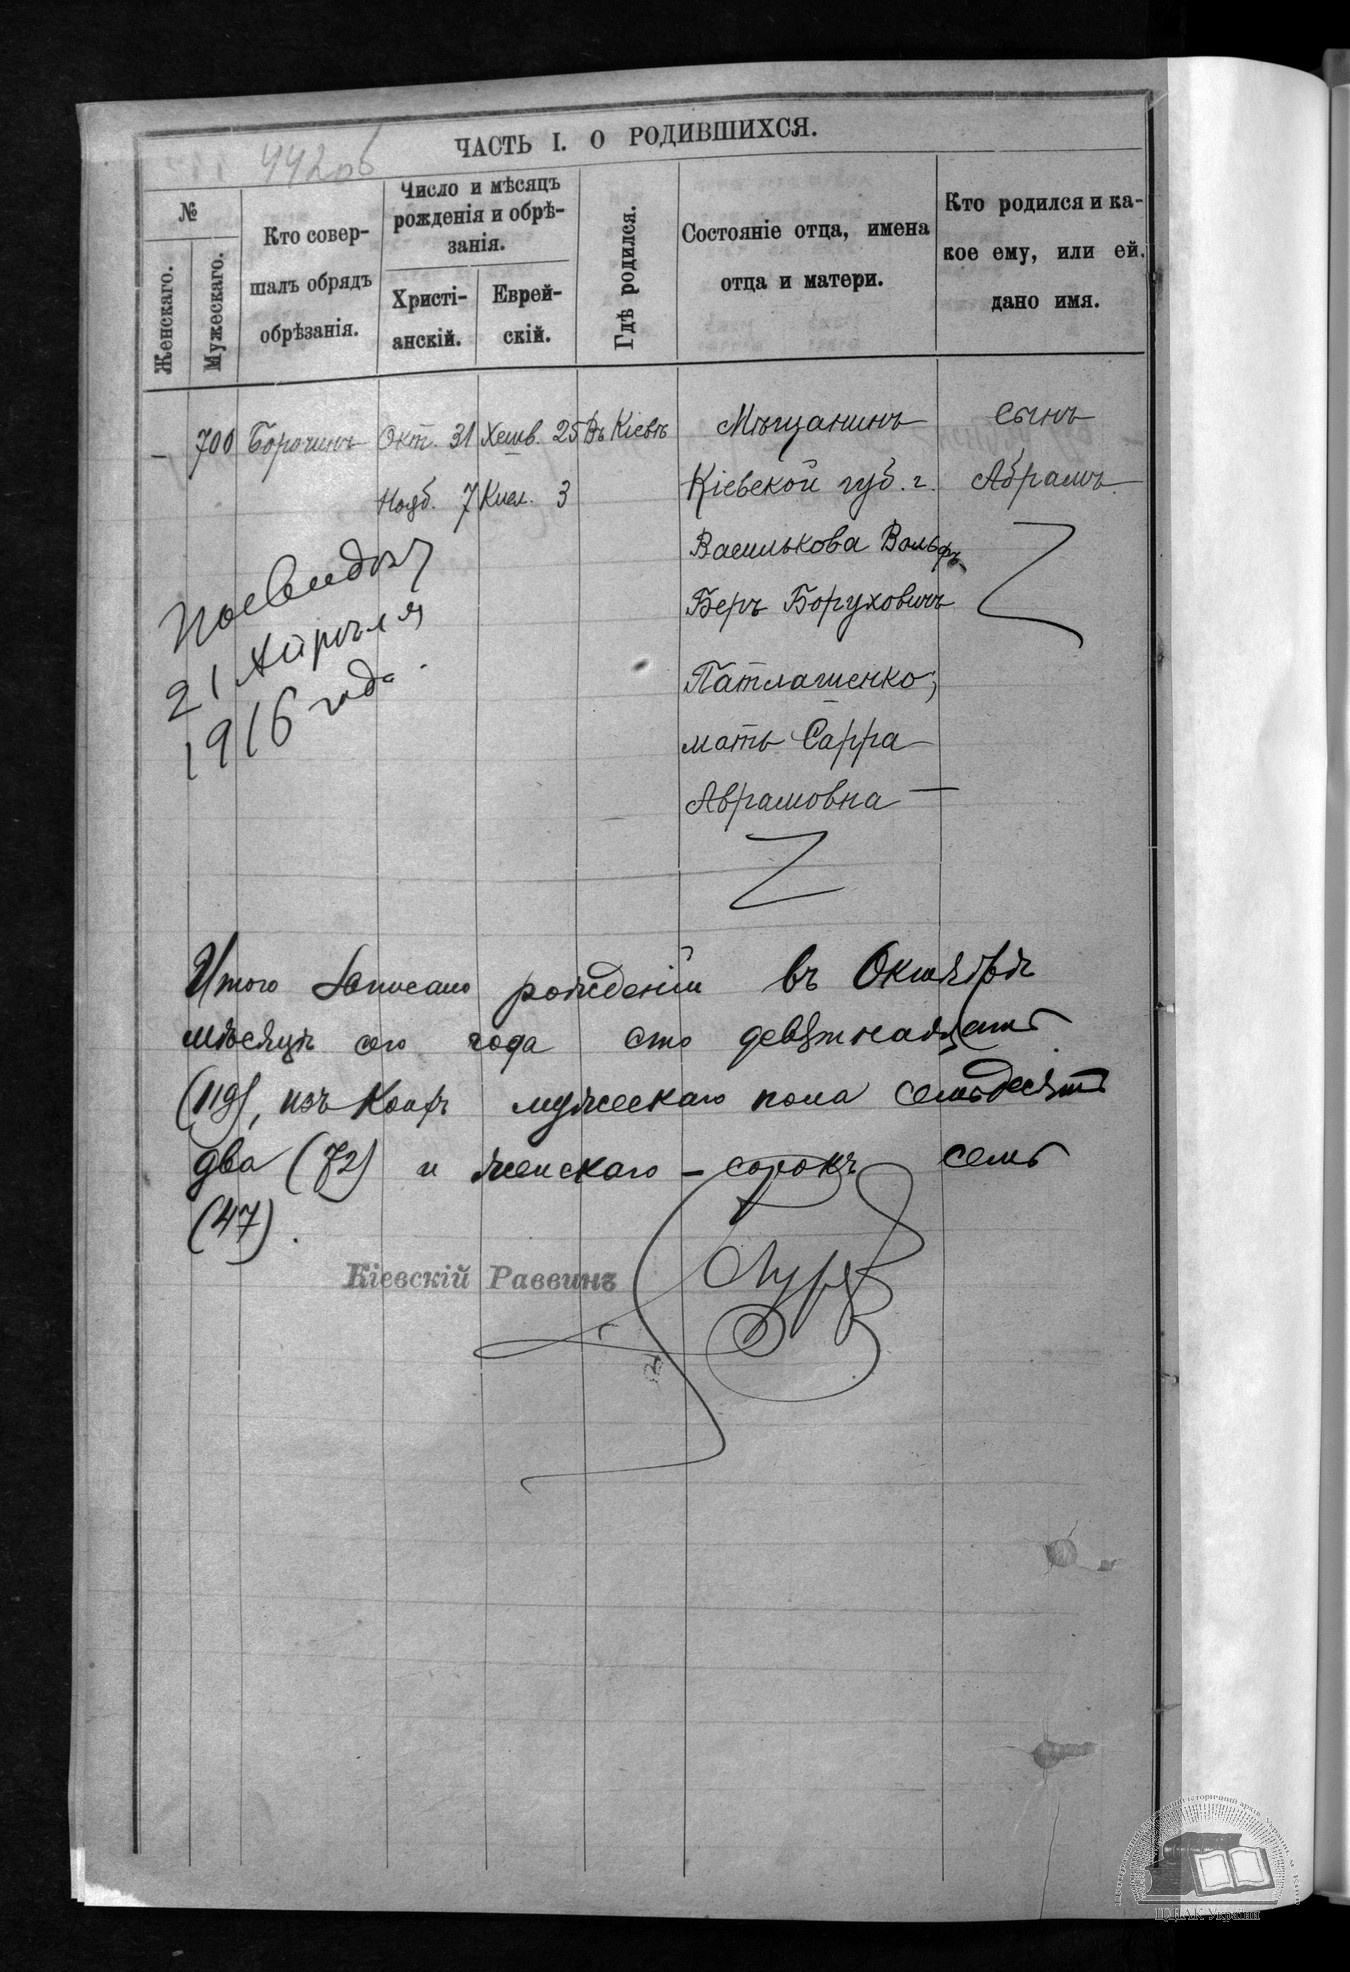 442об
ЧАСТЬ I. О РОДИВШИХСЯ.
№
Женскаго.
Мужескаго.
Кто совер-
шалъ обрядъ
обрѣзанія.
Число и мѣсяцъ
рожденія и обрѣ-
занія.
Христі-
анскій.
Еврей-
скій.
Гдѣ родился.
Состояніе отца, имена
отца и матери.
Кто родился и ка-
кое ему, или ей
дано имя.
— 700 Окт. 31 Хешв. 25 Въ Кіевѣ Мѣщанинъ сынъ
Нояб. 7 Кисл. 3 Кіевской губ. г. Абрамъ
Василькова Вольфъ
Беръ Боруховичъ
Патлашенко,
мать Сарра
Аврамовна —
21 Апрѣля
1916 года
Итого записано рожденій въ Октябрѣ
мѣсяцѣ сего года сто девятнадцать
(119), изъ коихъ мужескаго пола семьдесятъ
два (72) и женскаго – сорокъ семь
(47).
Кіевскій Раввинъ
ЦДІАК України